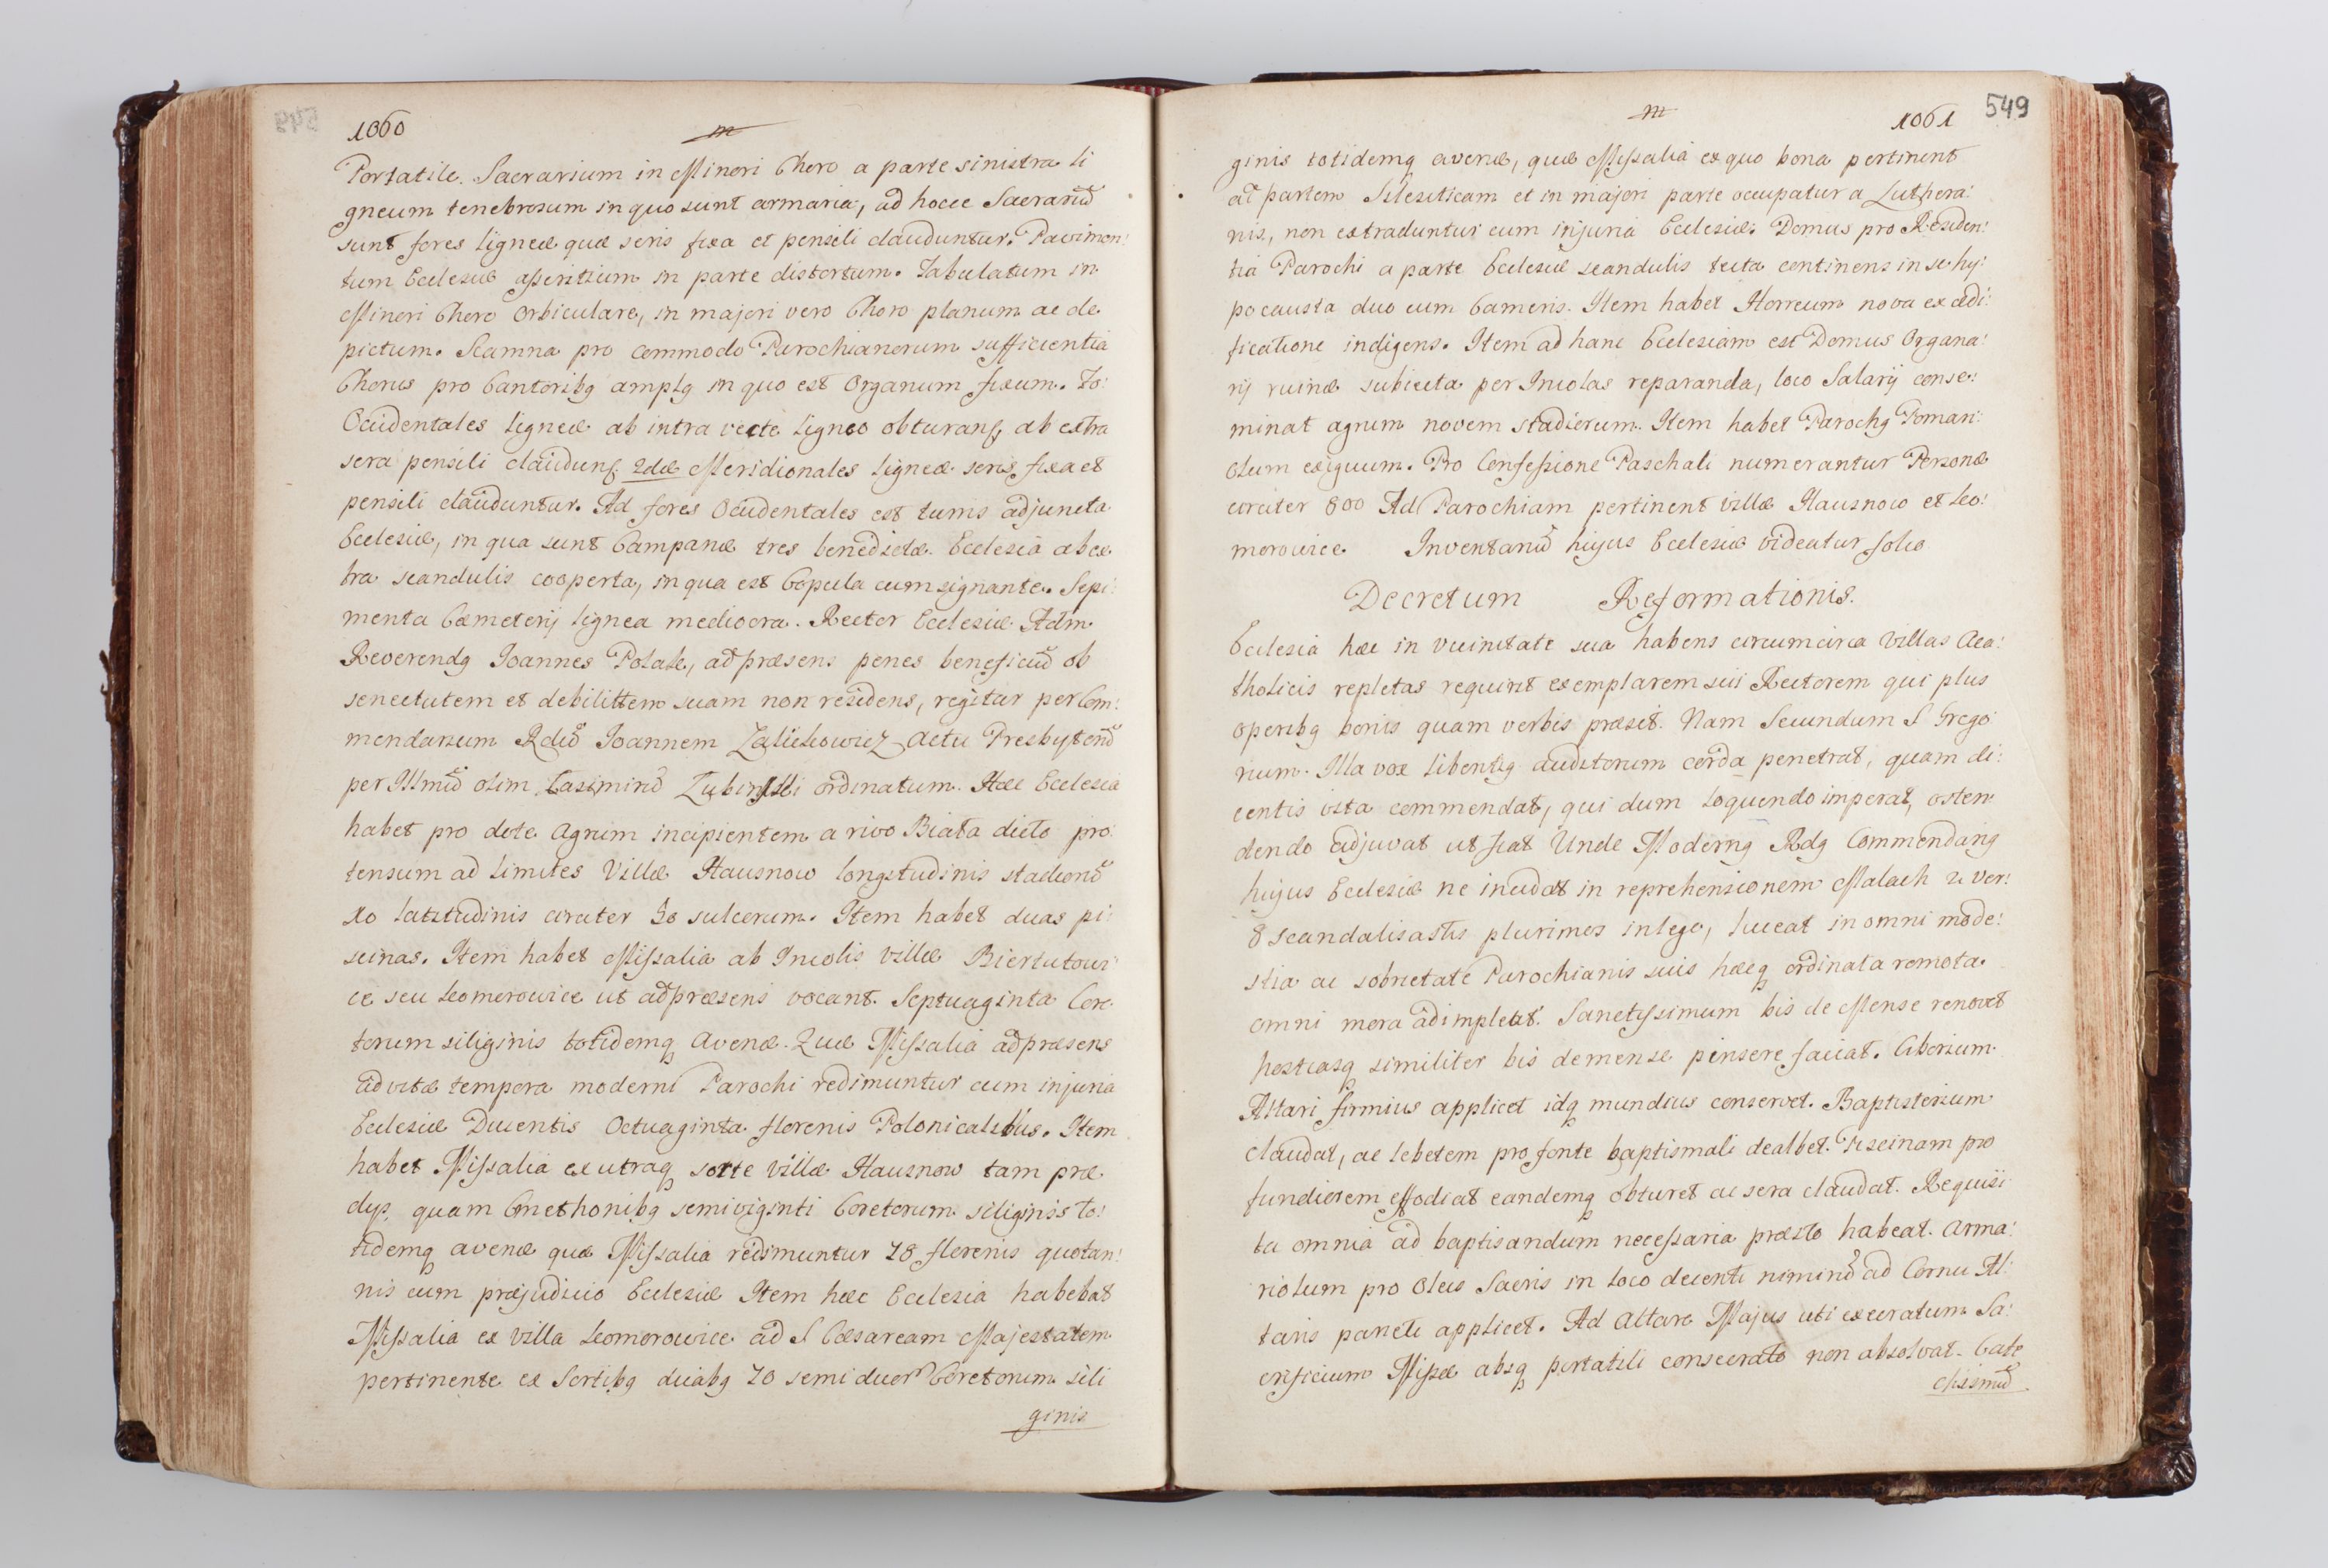 1060
m
Portatile. Sacrarium in Minori Choro a parte sinistra li
gneum tenebrosum in quo sunt armaria, ad hocce Sacrariũ
sunt fores ligneæ quæ seris fixa et pensili clauduntur. Pavimen:
tum Ecclesiæ asseritium in parte distortum. Tabulatum in
Minori Choro Orbiculare, in majori vero Choro planum ac de
pictum. Scamna pro commodo Parochianorum sufficientia
Chorus pro Cantoribq amplq in quo est Organum fixum. Fo:
Occidentales ligneæ ab intra vecte ligneo obturans, ab extra
sera pensili claudunt. 2dæ Meridionales ligneæ seris fixa et
pensili clauduntur. Ad fores Occidentales est turris adjuncta
Ecclesiæ, in qua sunt Campanæ tres benedictæ. Ecclesia ab ex
tra scandulis cooperta, in qua est Copula cum signante. Sepi:
menta Cæmeterij lignea mediocra. Rector Ecclesiæ Adm
Reverendq Joannes Polak, ad præsens penes beneficiũ ob
senectutem et debilittem suam non residens, regitur per Com:
mendarium Rdũ Joannem Zalickowicz actu Presbyterũ
per Illmũ olim Casimirũ Łubiński ordinatum. Hæc Ecclesia
habet pro dote Agrum incipientem a rivo Biała dicto pro:
tensum ad limites Villæ Hausnow longitudinis stadionũ
10 latitudinis circiter 30 sulcorum. Item habet duas pi:
scinas. Item habet Missalia ab Incolis villæ Biertutowi
ce seu Leomerowice ut ad præsens vocant. Septuaginta Core
torum siliginis totidemq Avenæ. Quæ Missalia ad præsens
ad vitæ tempora moderni Parochi redimuntur cum injuria
Ecclesiæ Ducentis Octuaginta florenis Polonicalibus. Item
habet Missalia ex utraq sorte villæ Hausnow tam præ
dijs, quam Cmethonibq semiviginti Coretorum siliginis to:
tidemq avenæ quæ Missalia redimuntur 78 florenis quotan:
nis cum præjudicio Ecclesiæ Item hæc Ecclesia habebat
Missalia ex villa Leomorowice ad S Cæsaream Majestatem
pertinente ex Sortibq duabq 20 semi duor Coretorum sili
ginis
m
1061 549
ginis totidemq avenæ, quæ Missalia ex quo bona pertinent
ad partem Silesiticam et in majori parte occupatur a Luthera:
nis, non extraduntur cum injuria Ecclesiæ. Domus pro Residen:
tia Parochi a parte Ecclesiæ scandulis tecta continens in se hy:
pocausta duo cum Cameris. Item habet Horreum nova ex ædi:
ficatione indigens. Item ad hanc Ecclesiam est Domus Organa:
rij ruinæ subiecta per Incolas reparanda, loco Salarij conse:
minat agrum novem stadiorum. Item habet Parochq Pomari:
olum exiguum. Pro Confessione Paschali numerantur Personæ
circiter 800 Ad Parochiam pertinent villæ Hausnow et Leo:
morowice. Inventariũ hujus Ecclesiæ videatur folio
Decretum Reformationis.
Ecclesia hæc in vicinitate sua habens circumcirca villas Aca:
tholicis repletas requirit exemplarem sui Rectorem qui plus
operibq bonis quam verbis præsit. Nam Secundum S Grego:
rium. Illa vox libentiq auditorum corda penetrat, quam di:
centis vita commendat, qui dum loquendo imperat, osten
dendo adjuvat ut fiat Unde Modernq Rdq Commendariq
hujus Ecclesiæ ne incidat in reprehensionem Malach 2 ver:
8 scandalisastis plurimos in lege, luceat in omni mode:
stia ac sobrietate Parochianis suis hæcq ordinata remota
omni mora adimpleat. Sanctissimum bis de Mense renovet
hostiasq similiter bis de mense pinsere faciat. Ciborium
Altari firmius applicet idq mundius conservet. Baptisterium
claudat, ac lebetem pro fonte baptismali dealbet. Piscinam pro
fundiorem effodiat eandemq obturet ac sera claudat. Requisi
ta omnia ad baptisandum necessaria præsto habeat. Arma:
riolum pro Oleis Sacris in loco decenti nimirũ ad Cornu Al:
taris parieti applicet. Ad Altare Majus uti execratum Sa:
crificium Missæ absq portatili consecrato non absolvat. Cate
chismũ